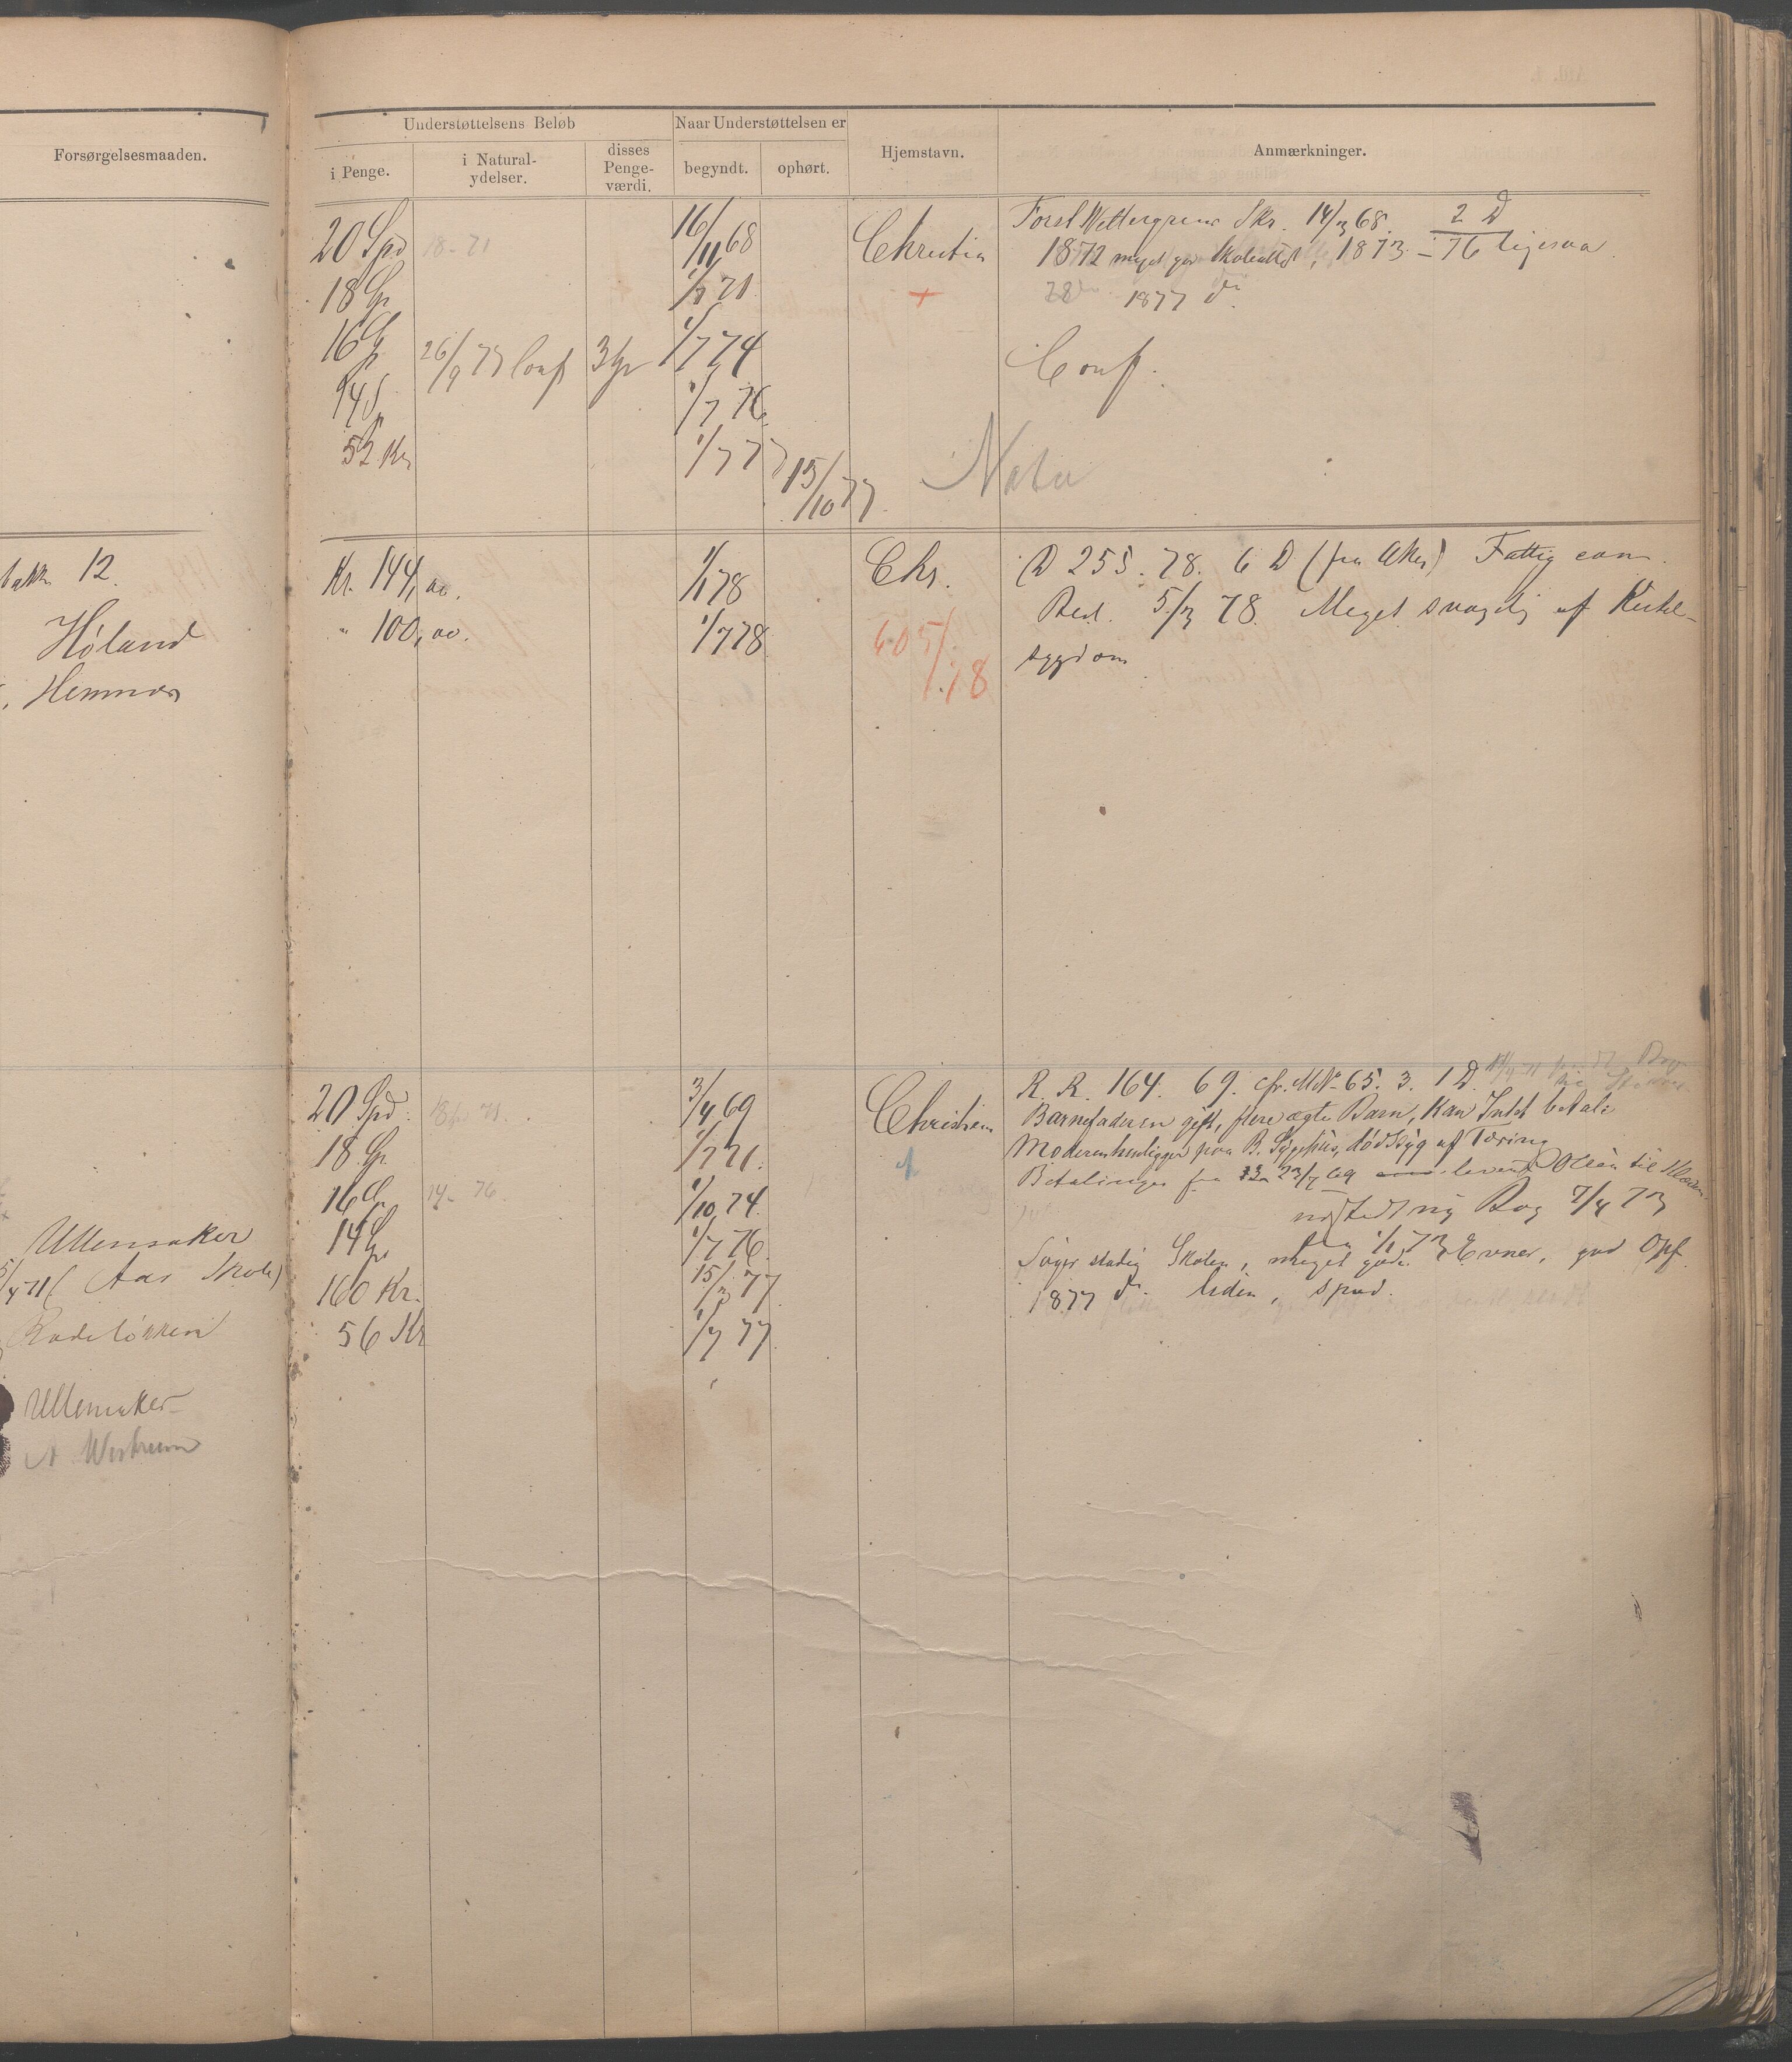 Forsørgelsesmaaden.
bakk 12.
Høland
Hemnæs
Ullensaker
5/4 71 ( Aas Skole)
Rodeløkken
Ullensaker
Understøttelsens Beløb
Naar Understøttelsen er
Hjemstavn.
Anmærkninger.
i Penge.
i Natural-
ydelser.
disses
Penge-
værdi.
begyndt.
ophørt.
20 Spd 18- 71
16/11 68
Christia
Forst Wettergrens Skr. 14/3 68. 2 D
18 Sp
1/7 71
+
1872 meget god Skoleattest, 1873 - 76 ligesaa
1877 do
16 Sp 26/9 77 Conf 3 Sp 1/7 74
Conf.
14 Sp
1/7 76
52 Kr
1/7 77
15/10 77
Kr. 144, 00.
1/1 78
Chr.
D 255. 78. 6 D (fra Aker) Fattig com.
" 100, 00.
1/7 78
605/78
Besl. 5/3 78. Meget svagelig af Kirtel-
sygdom
20 Spd.
3/4 69
Christian
R. R. 164. 69. cfr. M No 65. 3. 1 D.
18 Sp
1/7 71.
Barnefaderen gift, flere ægte Barn, kan Intet betale
Moderen henligger paa B. Sygehus, dødssyg af Tæring
16 Sp 14- 76.
1/10 74.
Betalinger fra 23/7 69
til
14 Sp
1/7 76
ny Bog 7/4 73
160 Kr.
15/3 77
Søger stadig Skolen, meget gode Evner, god Opf.
56 Kr
1/7 77
1877 do. liden, spæd.